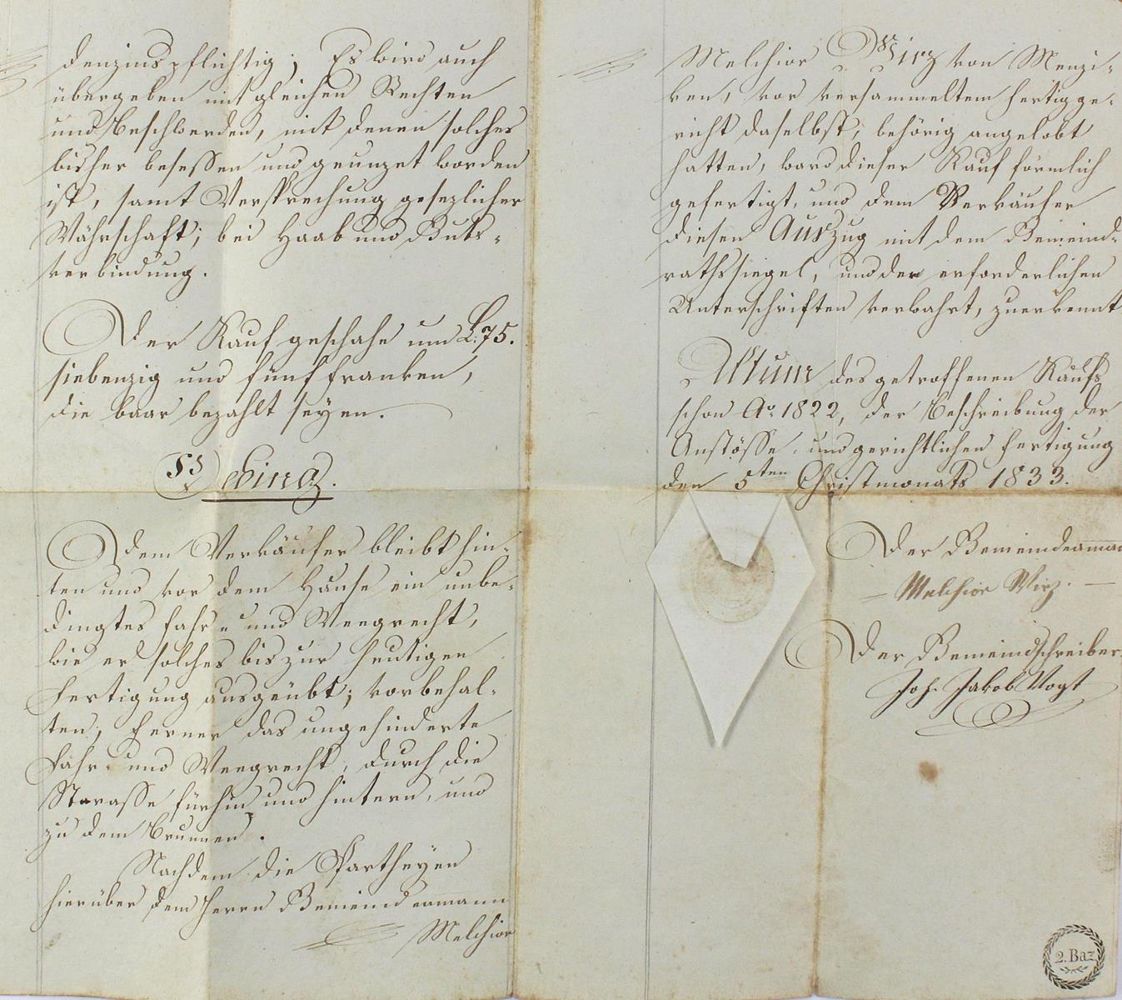 denzinspflichtig; Es wird auch
übergeben mit gleichen Rechten
und Beschwerden, mit denen solches
bisher besessen und genuzet worden
ist, samt Versprechung gesezlicher
Währschaft; bei Haab und Guts-
verbindung.
Der Kauf geschahe um L. 75.
siebenzig und fünf Franken,
die baar bezahlt seyen.
Dem Verkäufer bleibt hin-
ten und vor dem Hause ein unbe-
dingtes Fahr- und Weegrecht,
wie er solches bis zur heutigen
Fertigung ausgeübt; vorbehal-
ten; Ferner das ungehinderte
Fahr- und Weegrecht, durch die
Strasse fürhin und hintern, und
zu dem Brunnen.
Nachdem die Partheyen
hierüber dem Herrn Gemeindeammann
Melchior
Melchior Wirz von Menzi-
ken, vor versammeltem Fertigge-
richt daselbst, behörig angelobt
hatten, ward dieser Kauf förmlich
gefertigt, und dem Verkäufer
diesen Auszug mit dem Gemeind-
rathssiegel, und der erforderlichen
Unterschriften verwahrt, zuerkennt
Aktum des getroffenen Kaufs
schon Ao 1822, der Beschreibung der
Anstösse und gerichtlichen Fertigung
den 5ten Christmonats 1833.
Der Gemeindeamman
Melchior Wirz.
Der Gemeindschreiber
Joh. Jakob Vogt
2. Baz